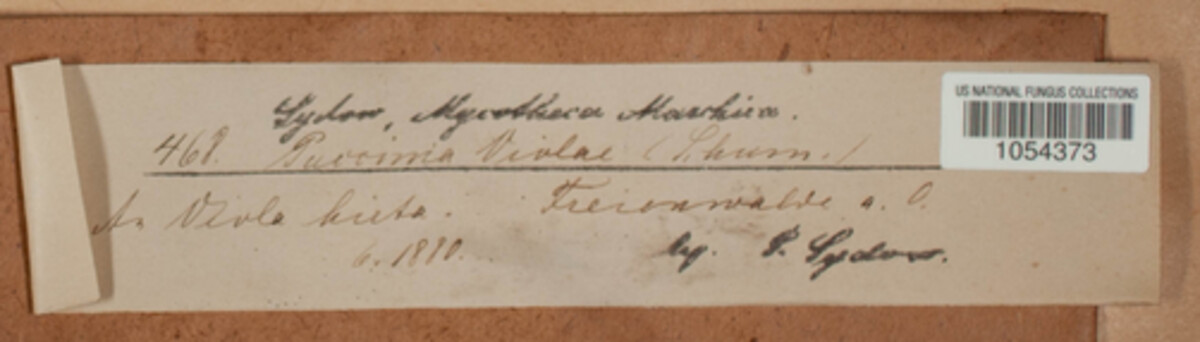 Sydow, Mycotheca Marchica.
US NATIONAL FUNGUS COLLECTIONS
1054373
468. Puccinia Violae (Schum.)
An Viola hirta. Freienwalde a. O.
6. 1880. leg. P. Sydow.